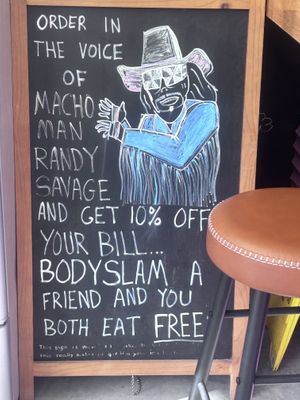 ORDER IN
THE VOICE
OF
MACHO
MAN
RANDY
SAVAGE
AND GET 10% OFF
YOUR BILL...
BODYSLAM A
FRIEND AND YOU
BOTH EAT FREE
This sign is